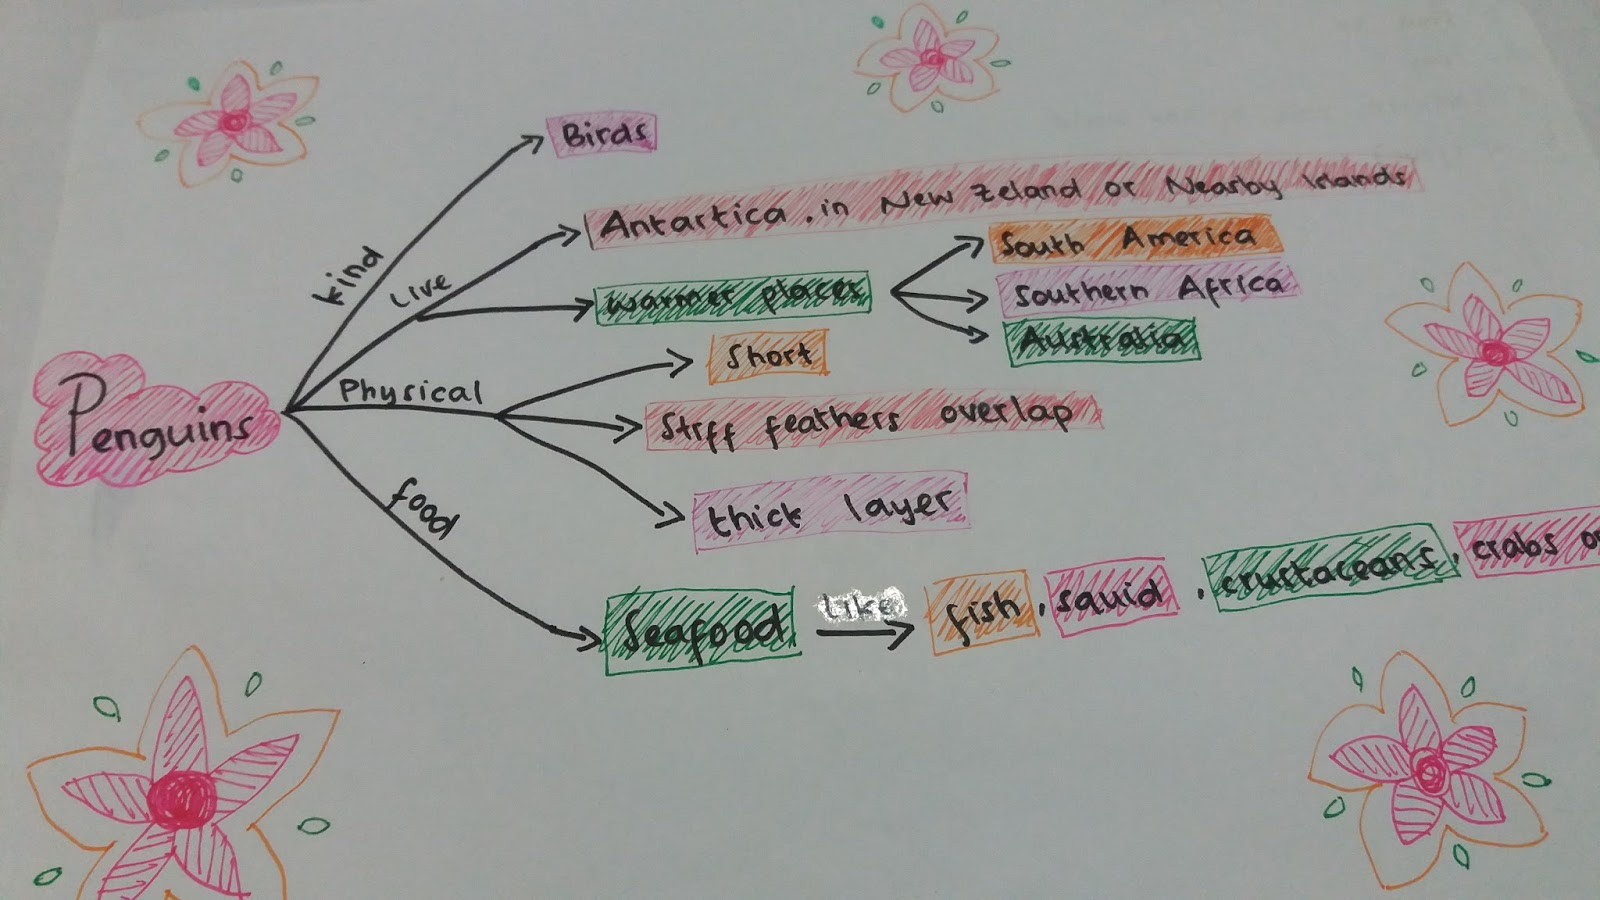 Birds
Antartica, in New Zeland or Nearby Islands
kind
Live
South America
warmer places
Southern Africa
Australia
Short
Physical
Penguins
Stiff feathers overlap
food
thick layer
Seafood Like fish, squid, crustaceans, crabs